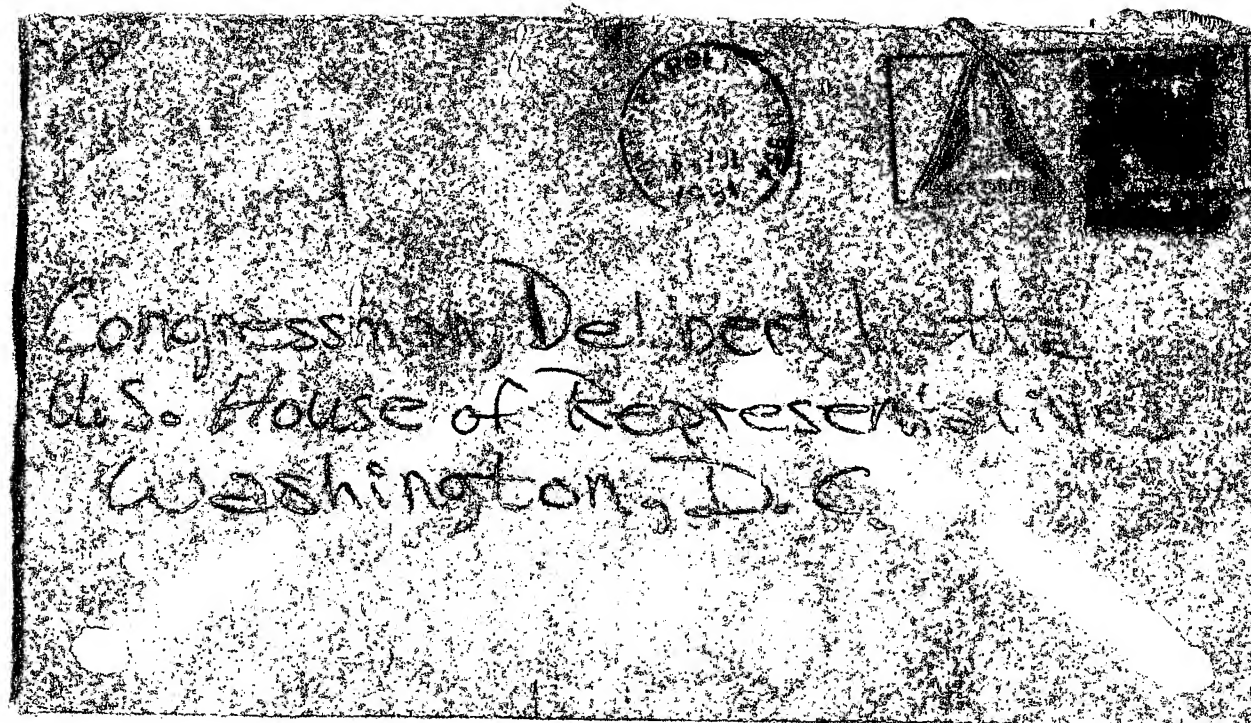 Congressman Delbert Latta
U.S. House of Representative
Washington, D.C.